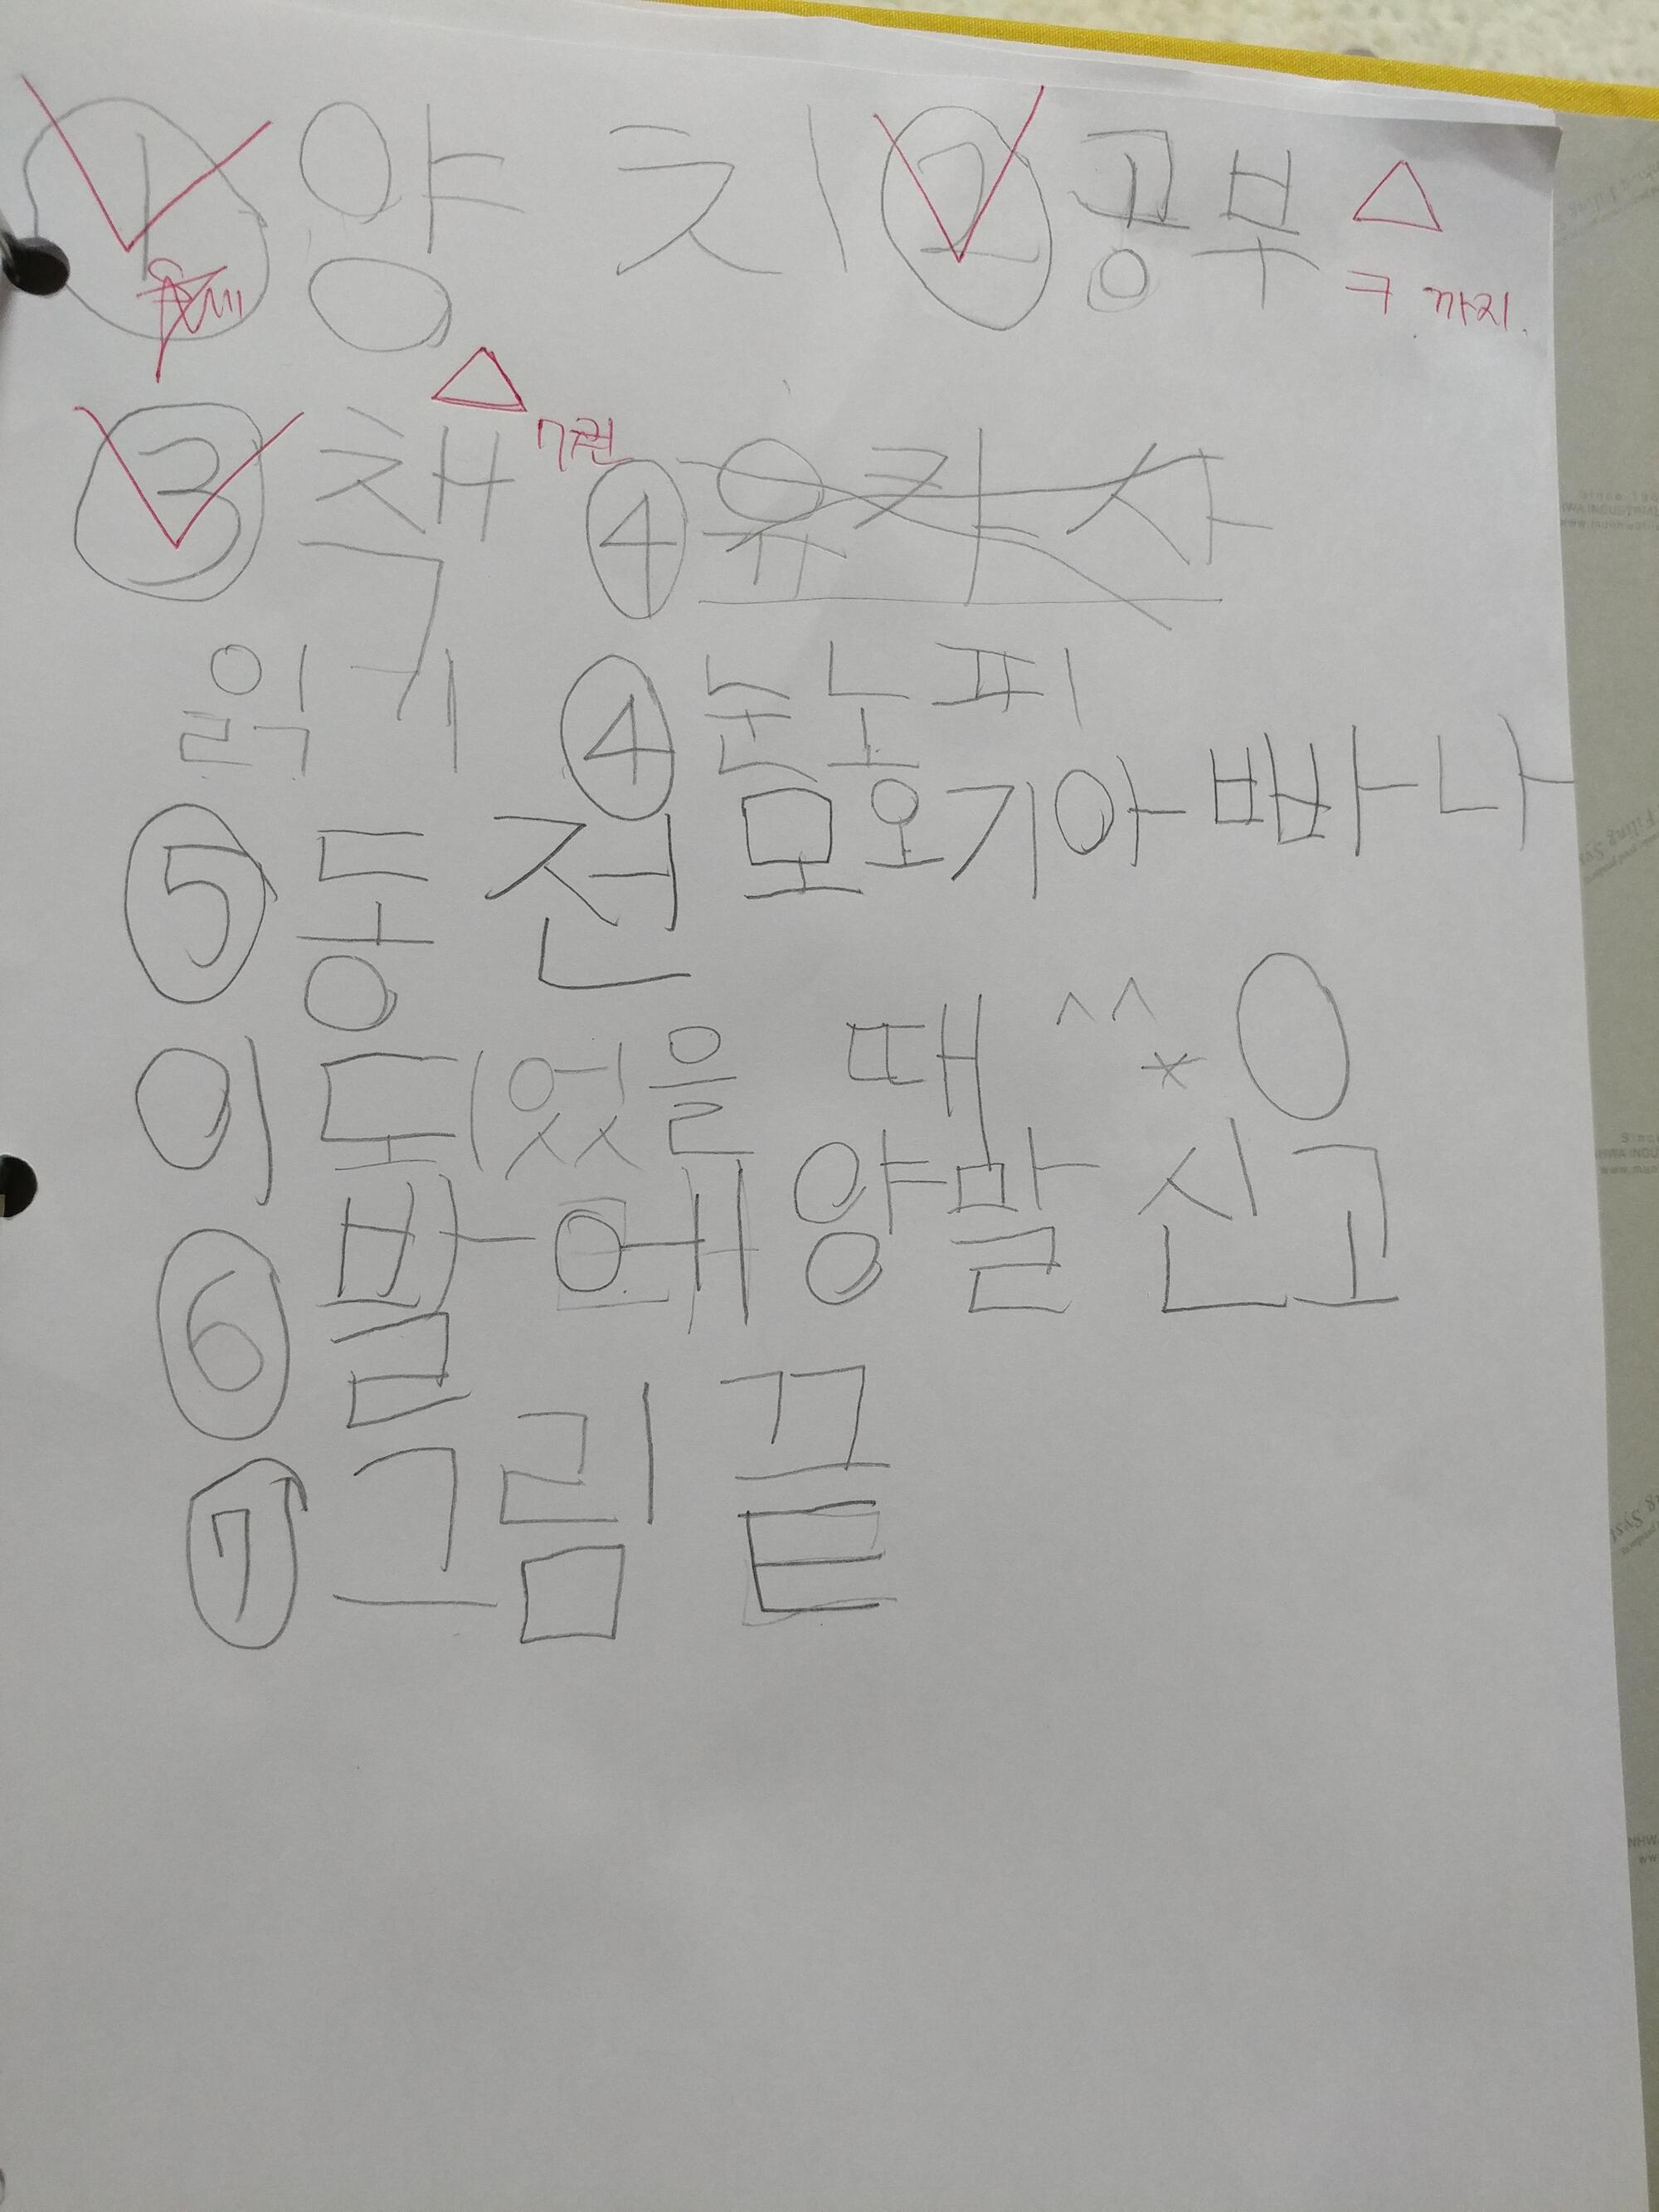 ① 양치 ② 공부 △
ㅋ 까지.
③ 책 △ 7권 ④ 유카사
읽기 ④ 눈노피
⑤ 동전 모오기 아빠나
이 돈 있을 때 ^^ * 0
⑥ 발에 양말 신고
⑦ 그림 끝